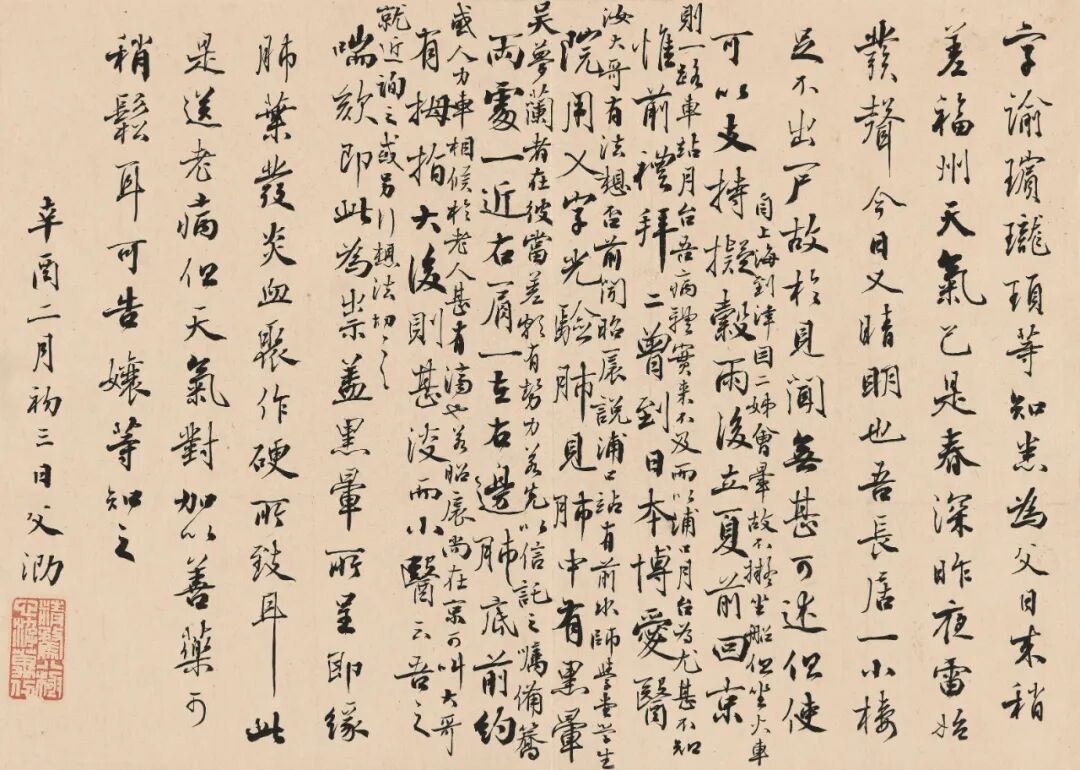 字諭璸瓏頊等知悉為父日來稍
差福州天氣已是春深昨夜雷始
發聲今日又晴明也吾長居一小樓
足不出戶故於見聞無甚可述但使
自上海到津因二姊會暈故不擬坐船但坐火車
可以支持擬穀雨後立夏前回京
則一路車站月台吾病體實來不及而以浦口月台為尤甚不知
惟前禮拜二曾到日本博愛醫
汝大哥有法想否前聞昭扆說浦口站有前水師學堂學生
院用乂字光驗肺見肺中有黑暈
吳夢蘭者在彼當差頗有勢力若先以信託之囑備籐
兩處一近右肩一在右邊肺底前約
或人力車相候於老人甚有濟也若昭扆尚在京可叫大哥
有拇指大後則甚淡而小醫云吾之
就近詢之或另行想法切切
喘欬即此為出示蓋黑暈所呈即緣
肺葉發炎血聚作硬所致耳此
是送老病但天氣對加以善藥可
稍鬆耳可告孃等知之
辛酉二月初三日父泐